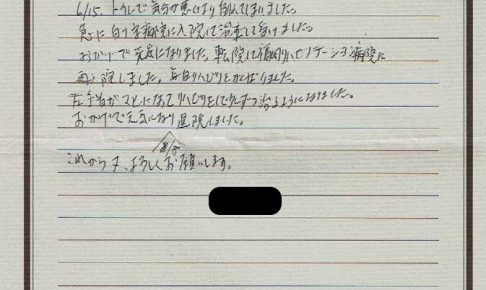 6/15、トイレで気分が悪くなり倒れてしまいました。
急に白十字病院に入院して治業して受けました。
おかげで元気になりました。転院して福岡リハビリテーション病院に
再入院しました。毎日リハビリをがんばりました。
左手首がマヒになってリハビリをして少しずつ治るようになりました。
おかげで元気になり退院しました。
これからも、よろしくお願いします。